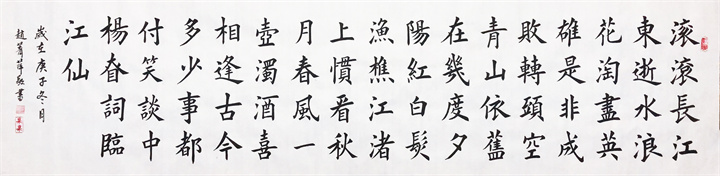 滾滾長江
東逝水浪
花淘盡英
雄是非成
敗轉頭空
青山依舊
在幾度夕
陽紅白髮
漁樵江渚
上慣看秋
月春風一
壺濁酒喜
相逢古今
多少事都
付笑談中
楊眘詞臨
江仙
歲在庚子冬月
趙萍敬書